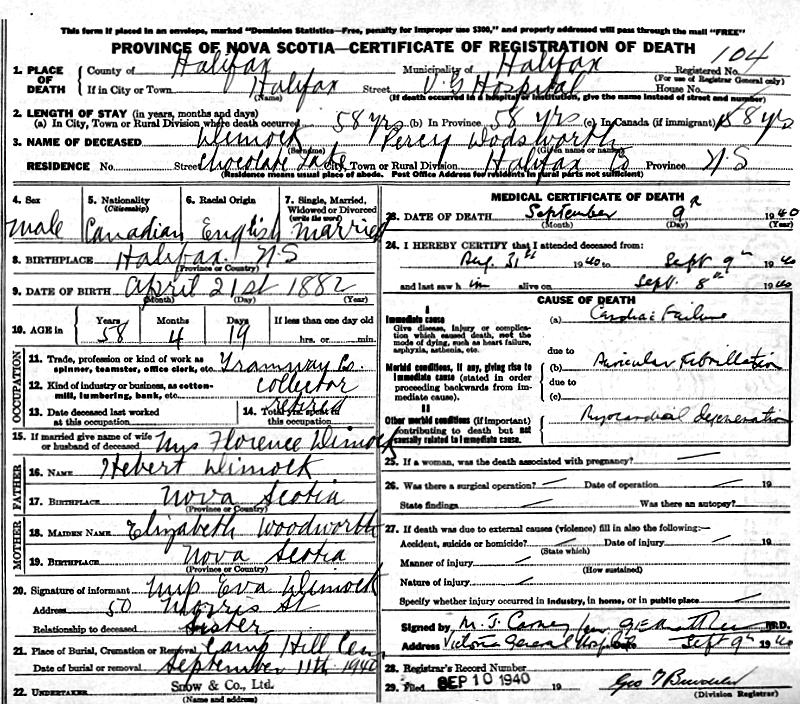 This form if placed in an envelope, marked "Dominion Statistics—Free, penalty for improper use $300," and properly addressed will pass through the mail "FREE"
PROVINCE OF NOVA SCOTIA—CERTIFICATE OF REGISTRATION OF DEATH
104
1. PLACE OF DEATH County of Halifax Municipality of Halifax Registered No. (For use of Registrar General only)
If in City or Town Halifax (Name) Street V G Hospital House No.
(If death occurred in a hospital or institution, give the name instead of street and number)
2. LENGTH OF STAY (in years, months and days)
(a) In City, Town or Rural Division where death occurred 58 yrs (b) In Province 58 yrs (c) In Canada (if immigrant) 58 yrs
3. NAME OF DECEASED Dimock Percy Wodsworth
(Surname) (Given name or names)
RESIDENCE No. Street Chocolate Lake City, Town or Rural Division Halifax Co Province N.S
(Residence means usual place of abode. Post Office Address for residents in rural parts not sufficient)
4. Sex 5. Nationality (Citizenship) 6. Racial Origin 7. Single, Married, Widowed or Divorced (write the word)
male Canadian English married
8. BIRTHPLACE Halifax. N.S
(Province or Country)
9. DATE OF BIRTH April 21st 1882
(Month) (Day) (Year)
10. AGE in Years Months Days If less than one day old
58 4 19 hrs. or min.
OCCUPATION
11. Trade, profession or kind of work as spinner, teamster, office clerk, etc. Tramway Co.
12. Kind of industry or business, as cotton-mill, lumbering, bank, etc. collector
retired
13. Date deceased last worked at this occupation. 14. Total yrs spent in this occupation
15. If married give name of wife or husband of deceased Mrs Florence Dimock
FATHER
16. NAME Hebert Dimock
17. BIRTHPLACE Nova Scotia
(Province or Country)
MOTHER
18. MAIDEN NAME Elizabeth Woodworth
19. BIRTHPLACE Nova Scotia
(Province or Country)
20. Signature of informant Miss Eva Dimock
Address 50 Morris St
Relationship to deceased Sister
21. Place of Burial, Cremation or Removal Camp Hill Cem
Date of burial or removal September 11th 1940
22. UNDERTAKER Snow & Co., Ltd.
(Name and address)
MEDICAL CERTIFICATE OF DEATH
23. DATE OF DEATH September 9 1940
(Month) (Day) (Year)
24. I HEREBY CERTIFY that I attended deceased from:
Aug. 31st 1940 to Sept 9th 1940
and last saw h im alive on Sept. 8th 1940
CAUSE OF DEATH
I
Immediate cause
Give disease, injury or complication which caused death, not the mode of dying, such as heart failure, asphyxia, asthenia, etc.
(a) Cardiac Failure
due to
Morbid conditions, if any, giving rise to immediate cause (stated in order proceeding backwards from immediate cause)
(b) Auricular Fibrillation
due to
(c)
II
Other morbid conditions (if important) contributing to death but not causally related to immediate cause.
Myocardial Degeneration
25. If a woman, was the death associated with pregnancy?
26. Was there a surgical operation? Date of operation 19
State findings Was there an autopsy?
27. If death was due to external causes (violence) fill in also the following:—
Accident, suicide or homicide? Date of injury 19
(State which)
Manner of injury
(How sustained)
Nature of injury
Specify whether injury occurred in industry, in home, or in public place
Signed by M. J. Carney M.D.
Address Victoria General Hospital Date Sept 9th 1940
28. Registrar's Record Number
29. Filed SEP 10 1940 19
(Division Registrar)